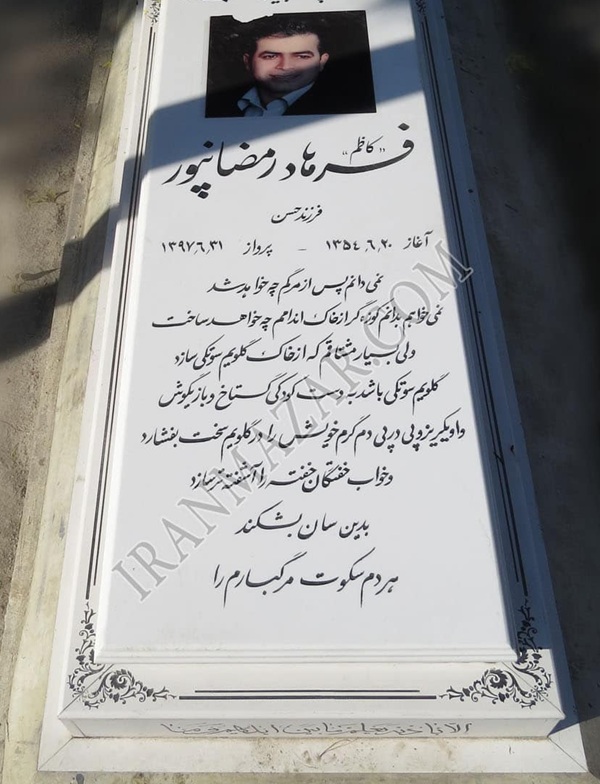 "کاظم"
فرهاد رمضانپور
فرزند حسن
آغاز ۱۳۵۴٫۶٫۲۰ - پرواز ۱۳۹۷٫۶٫۳۱
نمی دانم پس از مرگم چه خواهد شد
نمی خواهم بدانم کوزه گر از خاک اندامم چه خواهد ساخت
ولی بسیار مشتاقم که از خاک گلویم سوتکی سازد
گلویم سوتکی باشد به دست کودکی گستاخ و بازیگوش
و او یکریز و پی در پی دم گرم خویش را در گلویم سخت بفشارد
و خواب خفتگان خفته را آشفته تر سازد
بدین سان بشکند
هر دم سکوت مرگبارم را
IRANMAZAR.COM